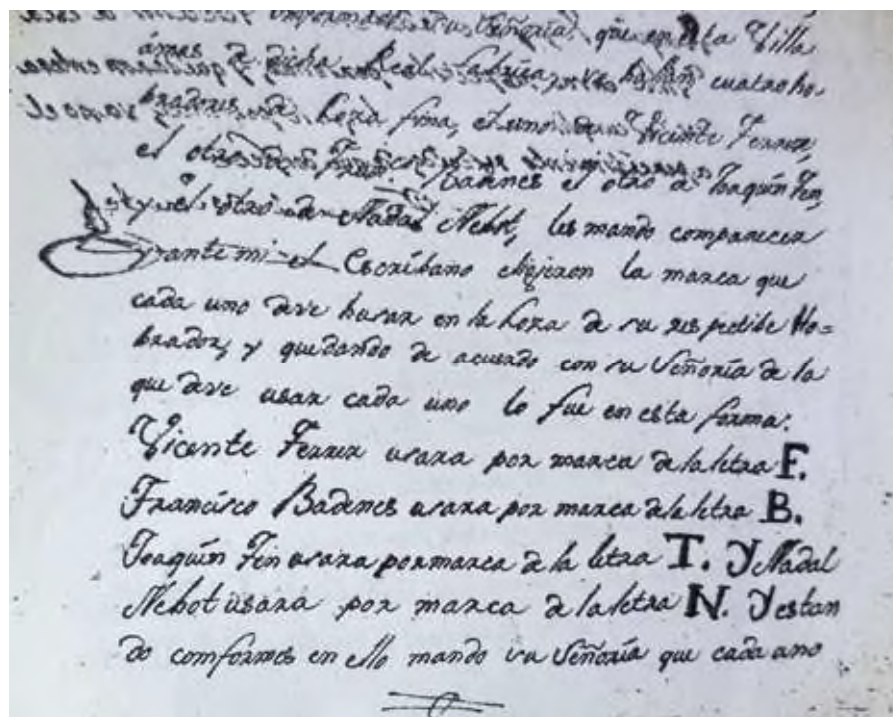 Señoría que en esta Villa
ámes de dicha Real fabrica se hallan cuatro ho-
bradores de Loza fina, el uno de Vicente Ferrer,
el otro de Badenes el otro a Joaquin Ten,
y el otro de Nadal Nebot, les mando comparecer
ante mi el Escribano elijeron la marca que
cada uno deve husar en la Loza de su respectibe Ho=
brador, y quedando de acuerdo con su Señoría de la
que deve usar cada uno lo fue en esta forma:
Vicente Ferrer usara por marca de la letra F.
Francisco Badenes usara por marca de la letra B.
Joaquin Ten usara por marca de la letra T. Y Nadal
Nebot usara por marca de la letra N. Y estan
do comformes en ello mando su Señoría que cada uno